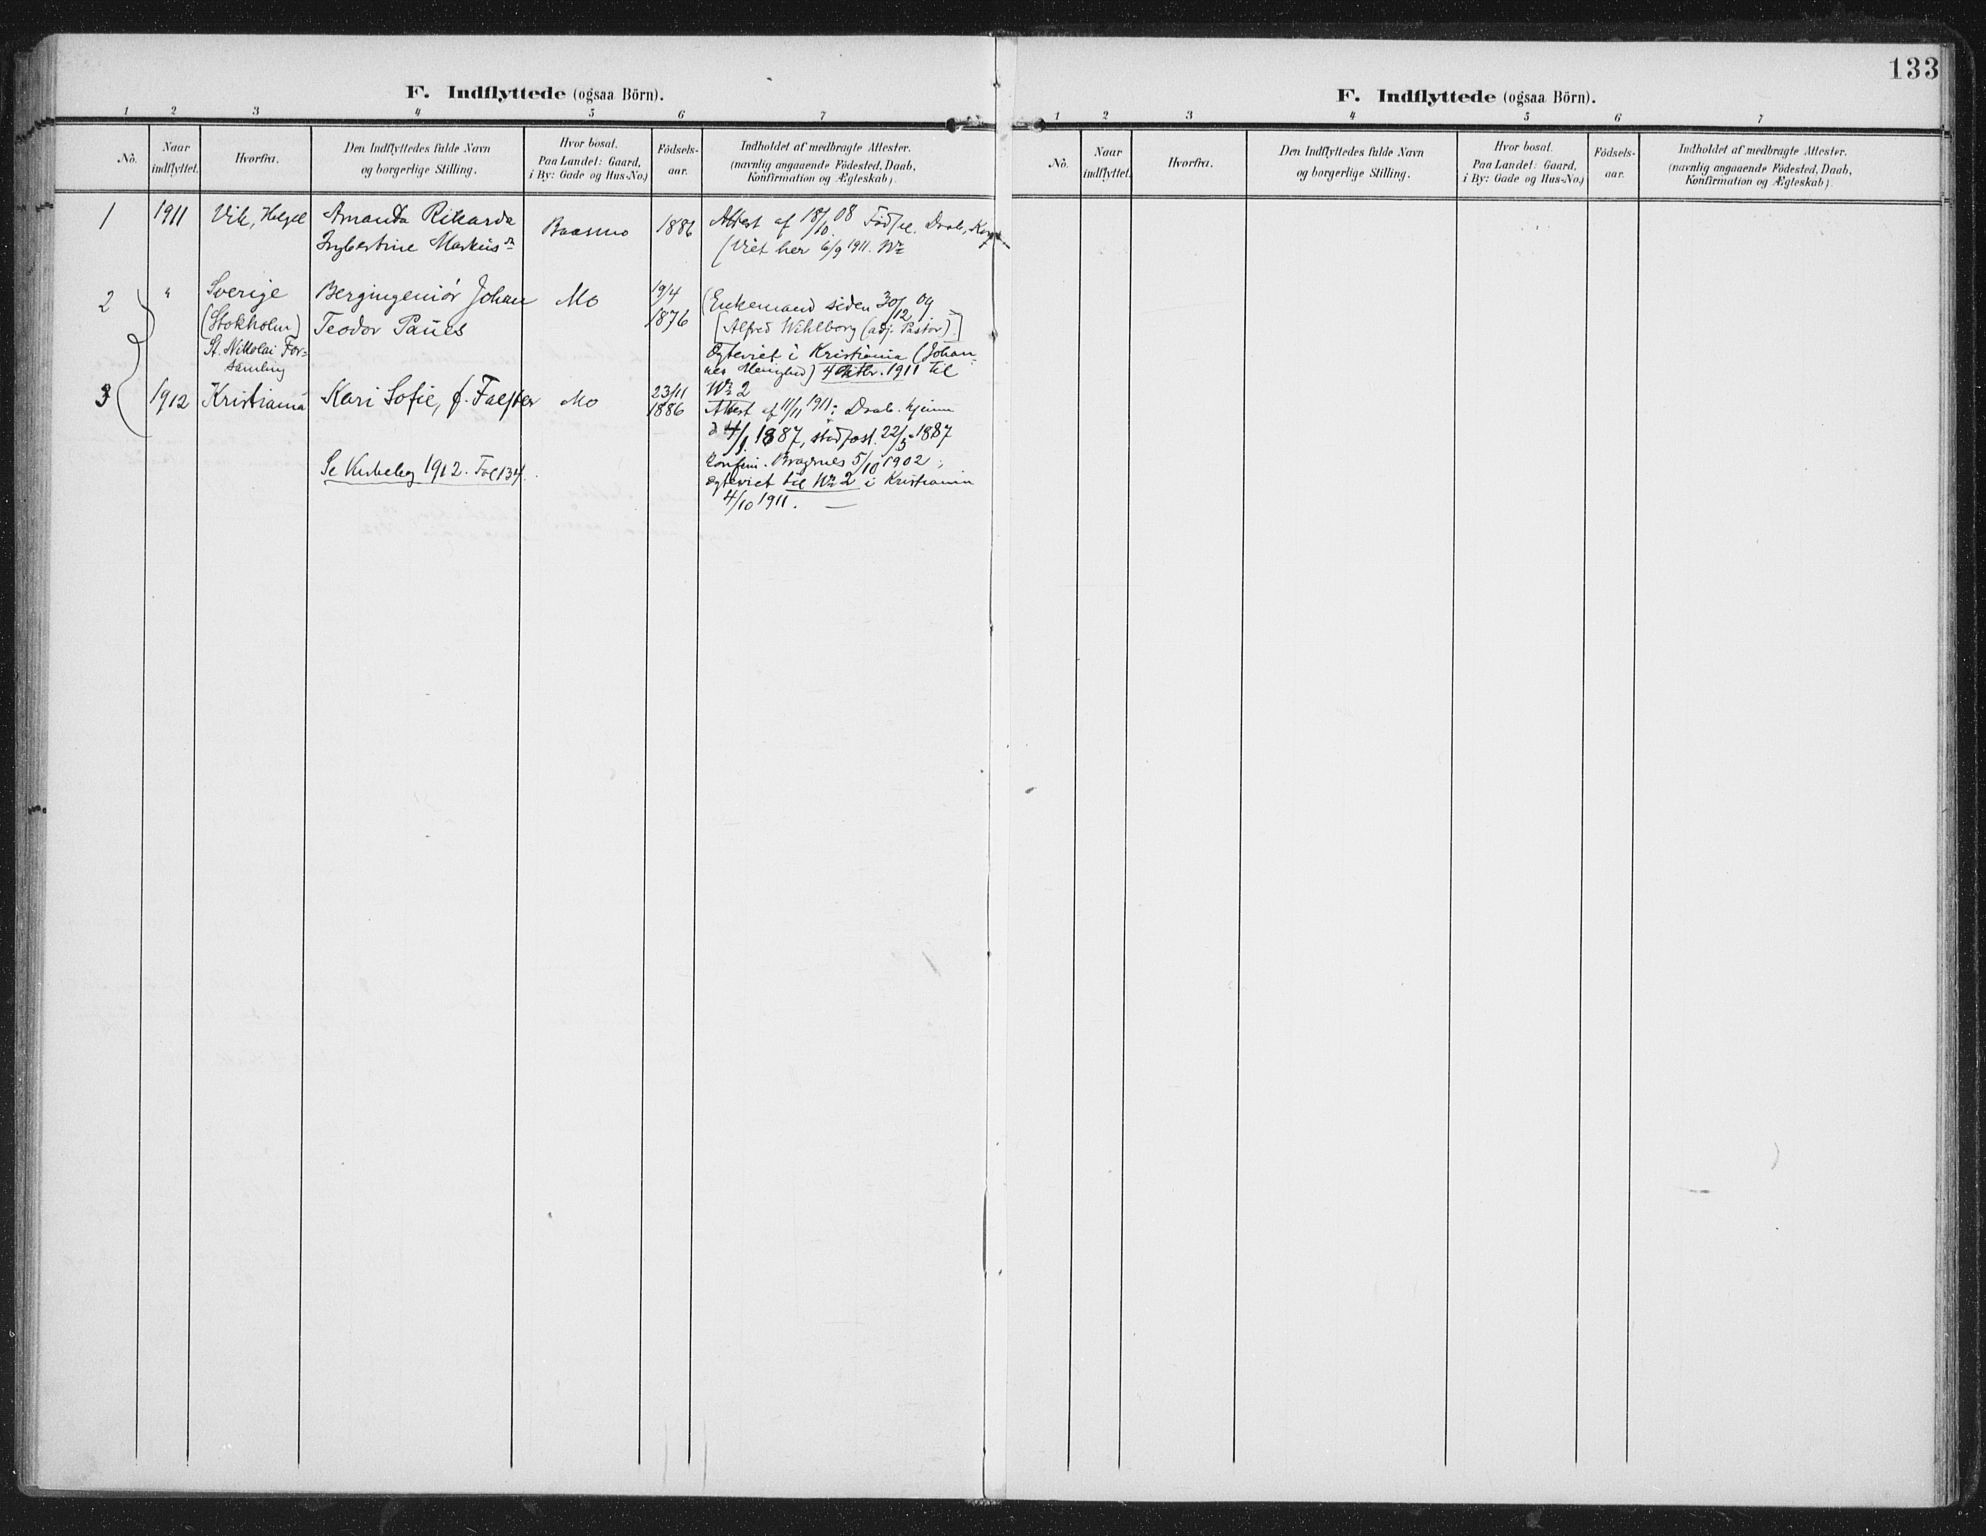 133
F. Indflyttede (ogsaa Börn).
1 2 3 4 5 6 7
No.
Naar
indflyttet.
Hvorfra.
Den Indflyttedes fulde Navn
og borgerlige Stilling.
Hvor bosat.
Paa Landet: Gaard,
i By: Gade og Hus-No.)
Födsels-
aar.
Indholdet af medbragte Attester.
(navnlig angaaende Födested, Daab,
Konfirmation og Ægteskab).
1 1911 Vik, Helgel Amanda Rikarda Baasmo 1886 Attest af 18/10 08 Födsel. Daab, Kon
Ingbertine Markusdr (Viet her 6/9 1911. Nr
2 " Sverige Bergingeniör Johan Mo 19/4 (Enkemand siden 30/12 09
(Stokholm) Teodor Paues 1876 [Alfred Wihlborg (adj. Pastor).]
St. Nikolai For-
samling
Ægteviet i Kristiania (Johan-
nes Menighed) 4 Oktbr. 1911 til
Nr 2
3 1912 Kristiania Kari Sofie, f. Falster Mo 23/11
1886 Attest af 11/11 1911: Daab. hjemme
d 4/1 1887, stadfæst. 22/5 1887
Konfirm. Bragernes 5/10 1902;
Se Kirkebog 1912. Fol 134.
Ægteviet til Nr 2 i Kristiania
4/10 1911. —
F. Indflyttede (ogsaa Börn).
1 2 3 4 5 6 7
No.
Naar
indflyttet.
Hvorfra.
Den Indflyttedes fulde Navn
og borgerlige Stilling.
Hvor bosat.
Paa Landet: Gaard,
i By: Gade og Hus-No.)
Födsels-
aar.
Indholdet af medbragte Attester.
(navnlig angaaende Födested, Daab,
Konfirmation og Ægteskab).